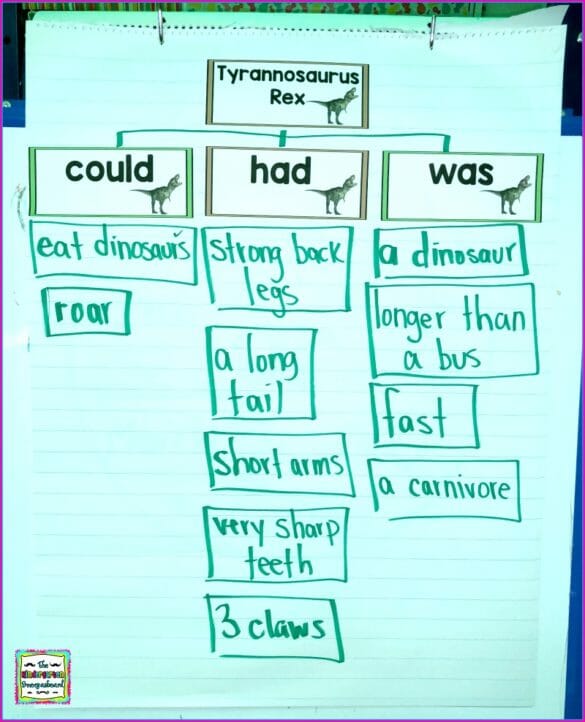 Tyrannosaurus
Rex
could
had
was
eat dinosaurs
roar
strong back
legs
a long
tail
short arms
very sharp
teeth
3 claws
a dinosaur
longer than
a bus
fast
a carnivore
The
Kindergarten
Smorgasboard